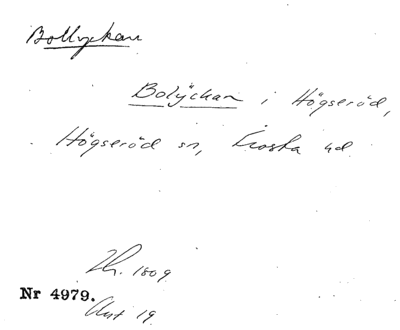 Bollyckan
Bolÿckan i Högseröd,
Högseröd sn, Frosta hd
Nr 4979.